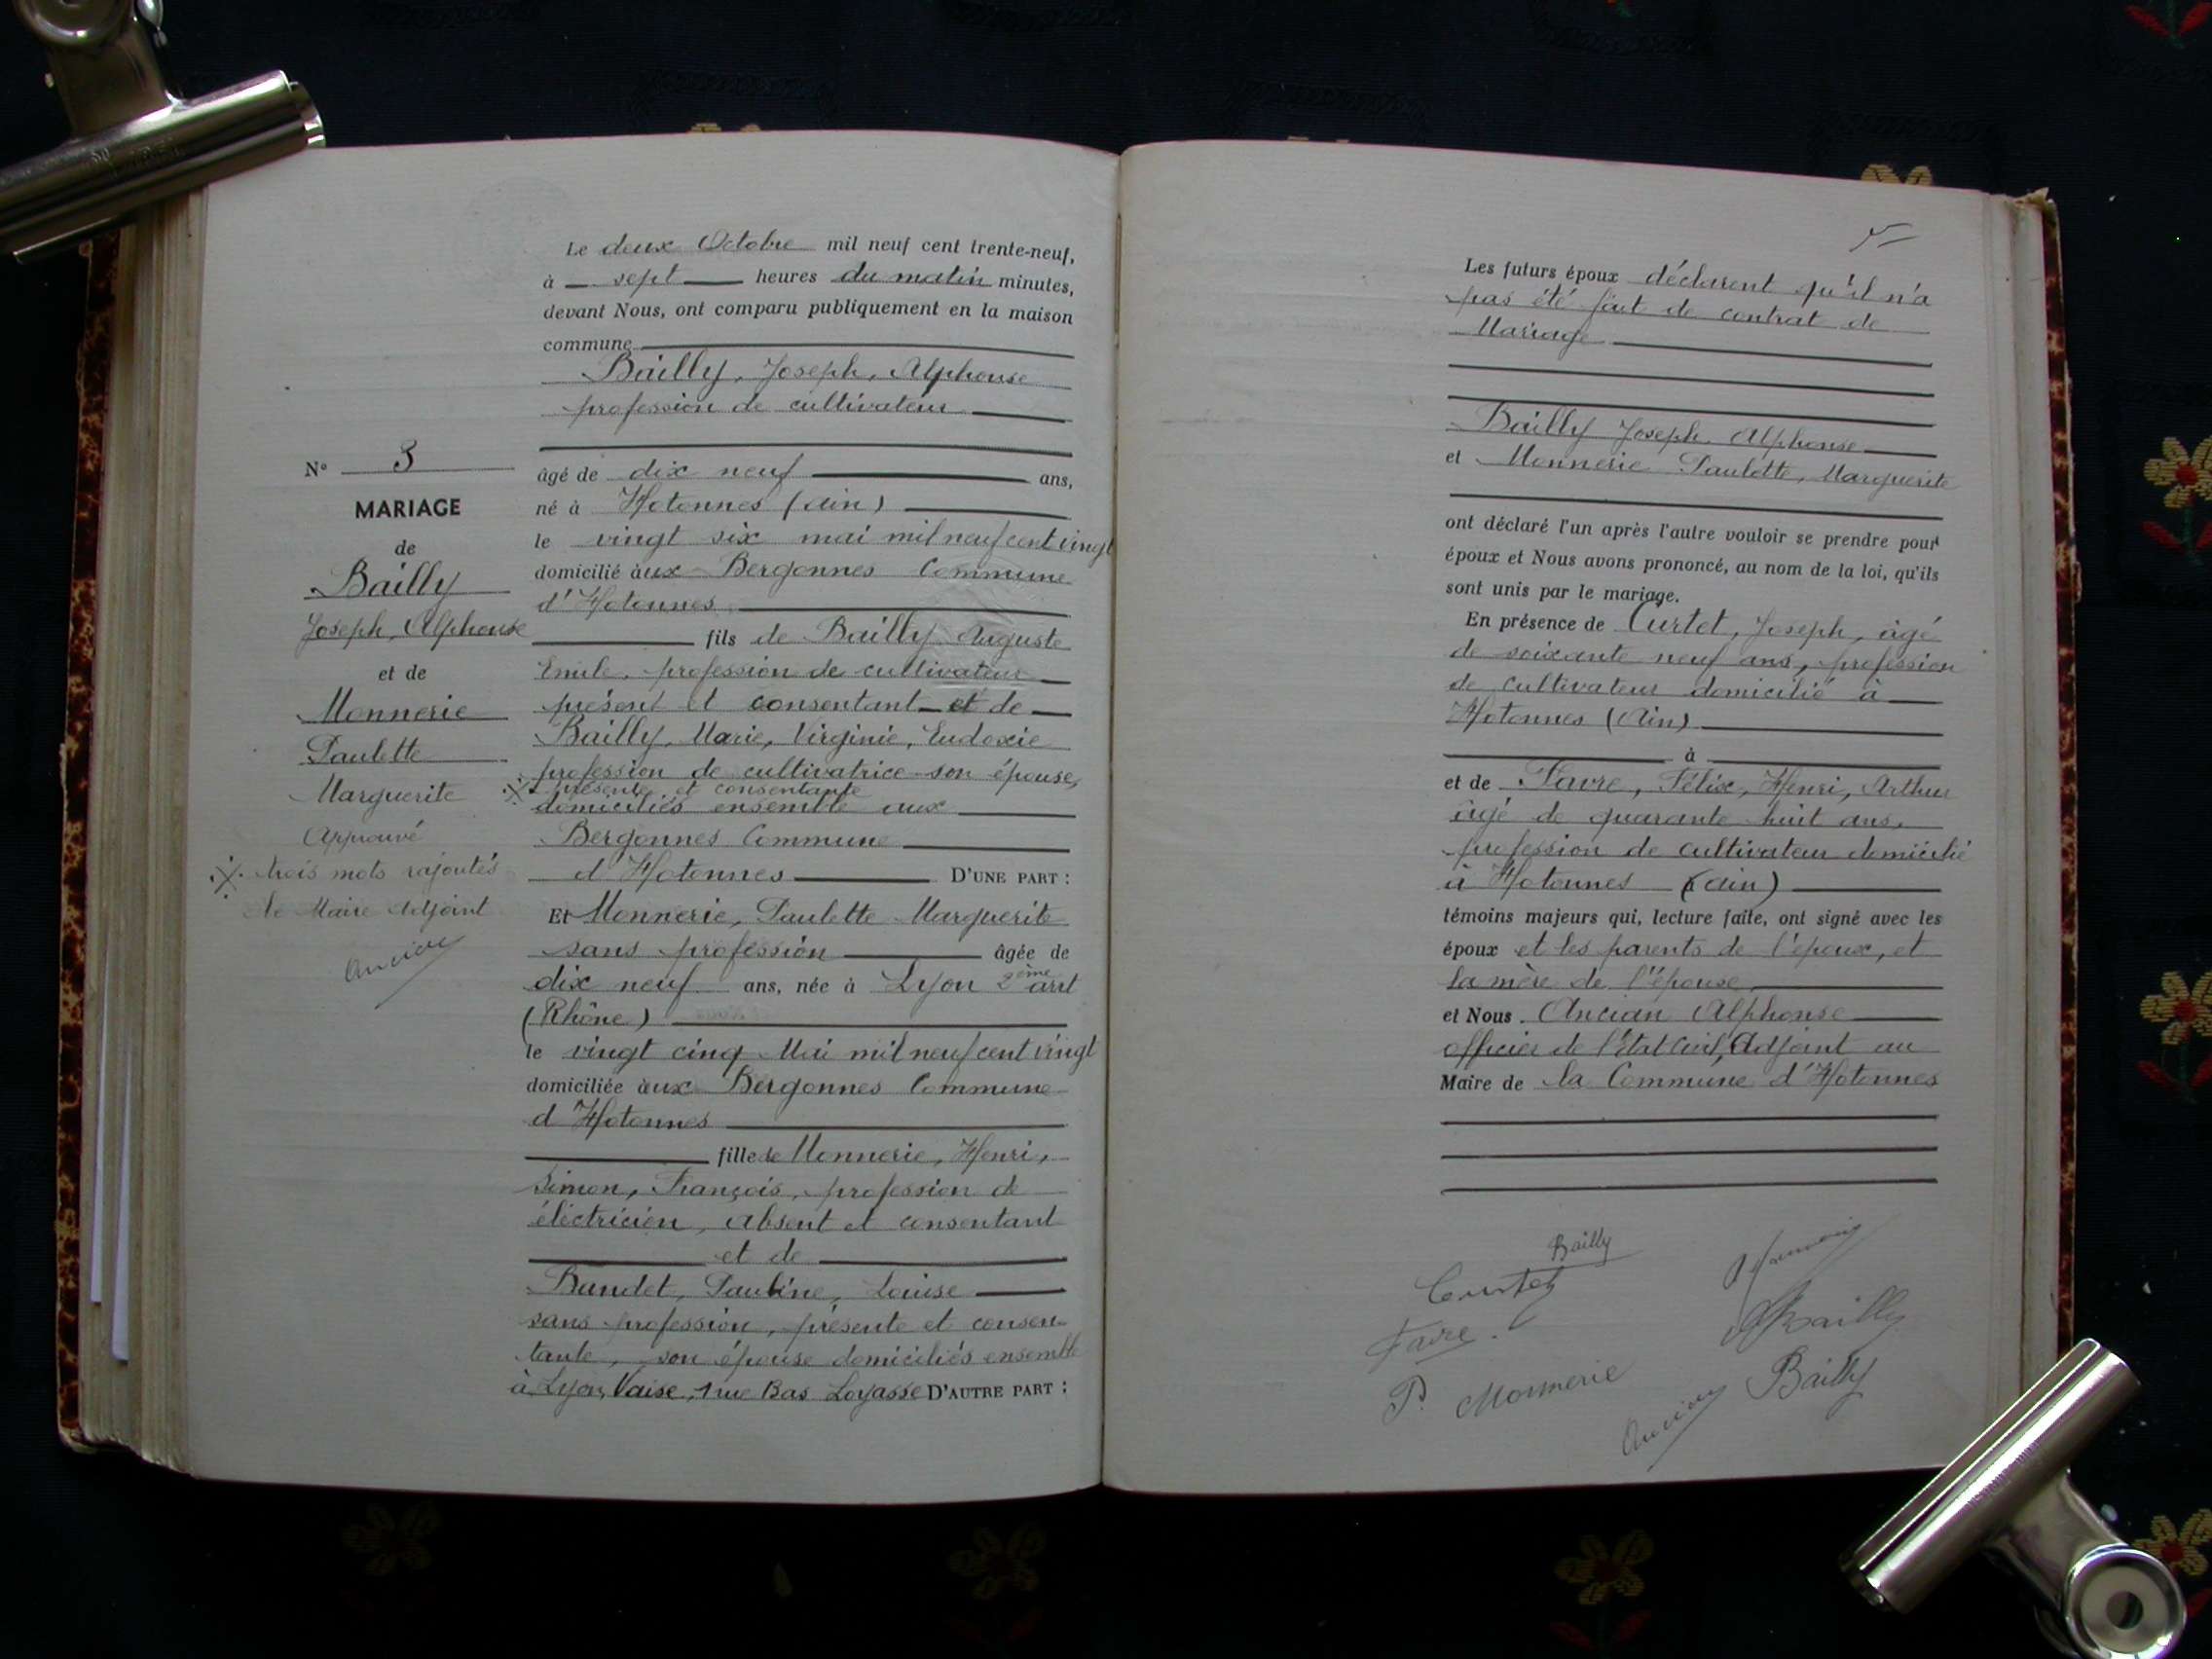 Le deux Octobre mil neuf cent trente-neuf,
à sept heures du matin minutes,
devant Nous, ont comparu publiquement en la maison
commune
Bailly, Joseph, Alphonse
profession de cultivateur
N° 3
MARIAGE
de
Bailly
Joseph, Alphonse
et de
Monnerie
Paulette
Marguerite
Approuvé
trois mots rajoutés
Le Maire Adjoint
Ancian
âgé de dix neuf ans,
né à Hotonnes (Ain)
le vingt six mai mil neuf cent vingt
domicilié àux Bergonnes Commune
d'Hotonnes
fils de Bailly Auguste
Emile, profession de cultivateur
présent et consentant et de
Bailly, Marie, Virginie, Eudoxie
profession de cultivatrice son épouse,
présente et consentante
domiciliés ensemble aux
Bergonnes Commune
d'Hotonnes D'UNE PART :
Et Monnerie, Paulette Marguerite
sans profession âgée de
dix neuf ans, née à Lyon 2ème arrt
(Rhône)
le vingt cinq Mai mil neuf cent vingt
domiciliée àux Bergonnes Commune
d'Hotonnes
fille de Monnerie, Henri,
Simon, François, profession de
éléctricien, absent et consentant
et de
Bandet, Pauline, Louise
sans profession, présente et consen-
tante, son épouse domiciliés ensemble
à Lyon, Vaise, 1 rue Bas Loyasse D'AUTRE PART :
Les futurs époux déclarent qu'il n'a
pas été fait de contrat de
Mariage
Bailly Joseph, Alphonse
et Monnerie Paulette, Marguerite
ont déclaré l'un après l'autre vouloir se prendre pour
époux et Nous avons prononcé, au nom de la loi, qu'ils
sont unis par le mariage.
En présence de Curtet, Joseph, âgé
de soixante neuf ans, profession
de cultivateur domicilié à
Hotonnes (Ain)
à
et de Favre, Félix, Henri, Arthur
âgé de quarante huit ans,
profession de cultivateur domicilié
à Hotonnes (Ain)
témoins majeurs qui, lecture faite, ont signé avec les
époux et les parents de l'époux, et
la mère de l'épouse
et Nous Ancian Alphonse
officier de l'état Civil, Adjoint au
Maire de la Commune d'Hotonnes
Bailly
Curtet
Favre
Bailly
P. Monnerie
Bailly
Ancian